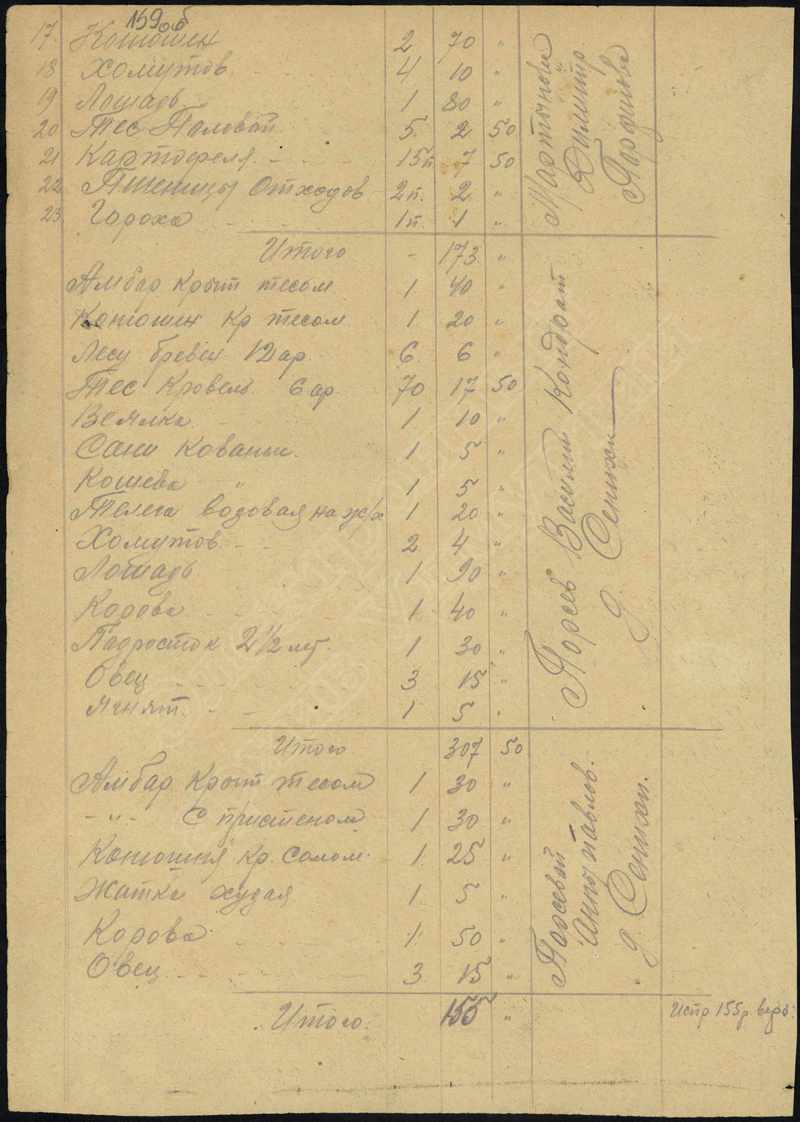 159 об
17. Конюшен 2 70 "
18 Хомутов 4 10 "
19 Лошадь 1 80 "
20 Тес Половой 5 2 50
21 Картофеля 15п 7 50
22 Пшеницы Отходов 2п. 2 "
23 Гороха 1п. 1 "
Итого - 173 "
Амбар крыт тесом 1 40 "
Конюшен кр тесом 1 20 "
Лесу бревен 12 ар. 6 6 "
Тес Кровель 6 ар. 70 17 50
Веялка 1 10 "
Сани кованы. 1 5 "
Кошева " 1 5 "
Телега водовая на ж/х 1 20 "
Хомутов 2 4 "
Лошадь 1 90 "
Корова 1 40 "
Падросток 2 1/2 лет. 1 30 "
Овец 3 15 "
Ягнят. 1 5 "
Итого 307 50
Амбар крыт тесом 1 30 "
-"- с пристеном 1 30 "
Конюшня кр. солом. 1 25 "
Жатка худая 1 5 "
Корова 1 50 "
Овец 3 15 "
Итого. 155 "
Испр 155 р. веро:
Дмитр
Василий Кондрат
д. Сенихи
Анны Павлов.
д. Сених.